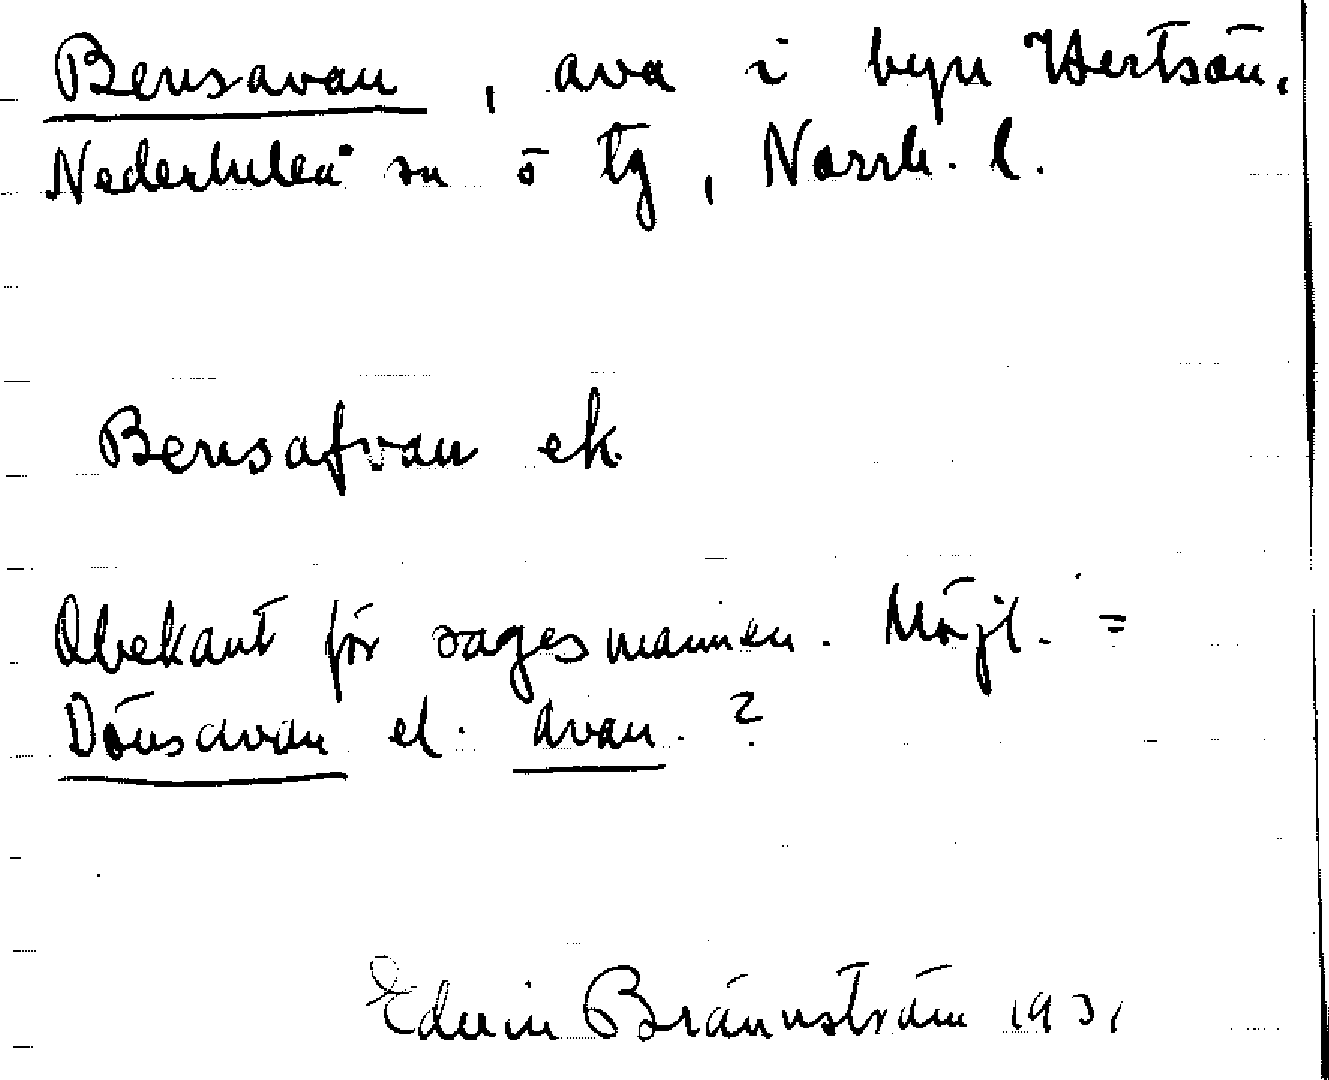 Bensavan, ava i byn Hertsön,
Nederluleå sn o tg, Norrb. l.
Bensafvan ek.
Obekant för sagesmannen. Möjl. =
Dönsavan el. avan. ?
Edvin Brännström 1931